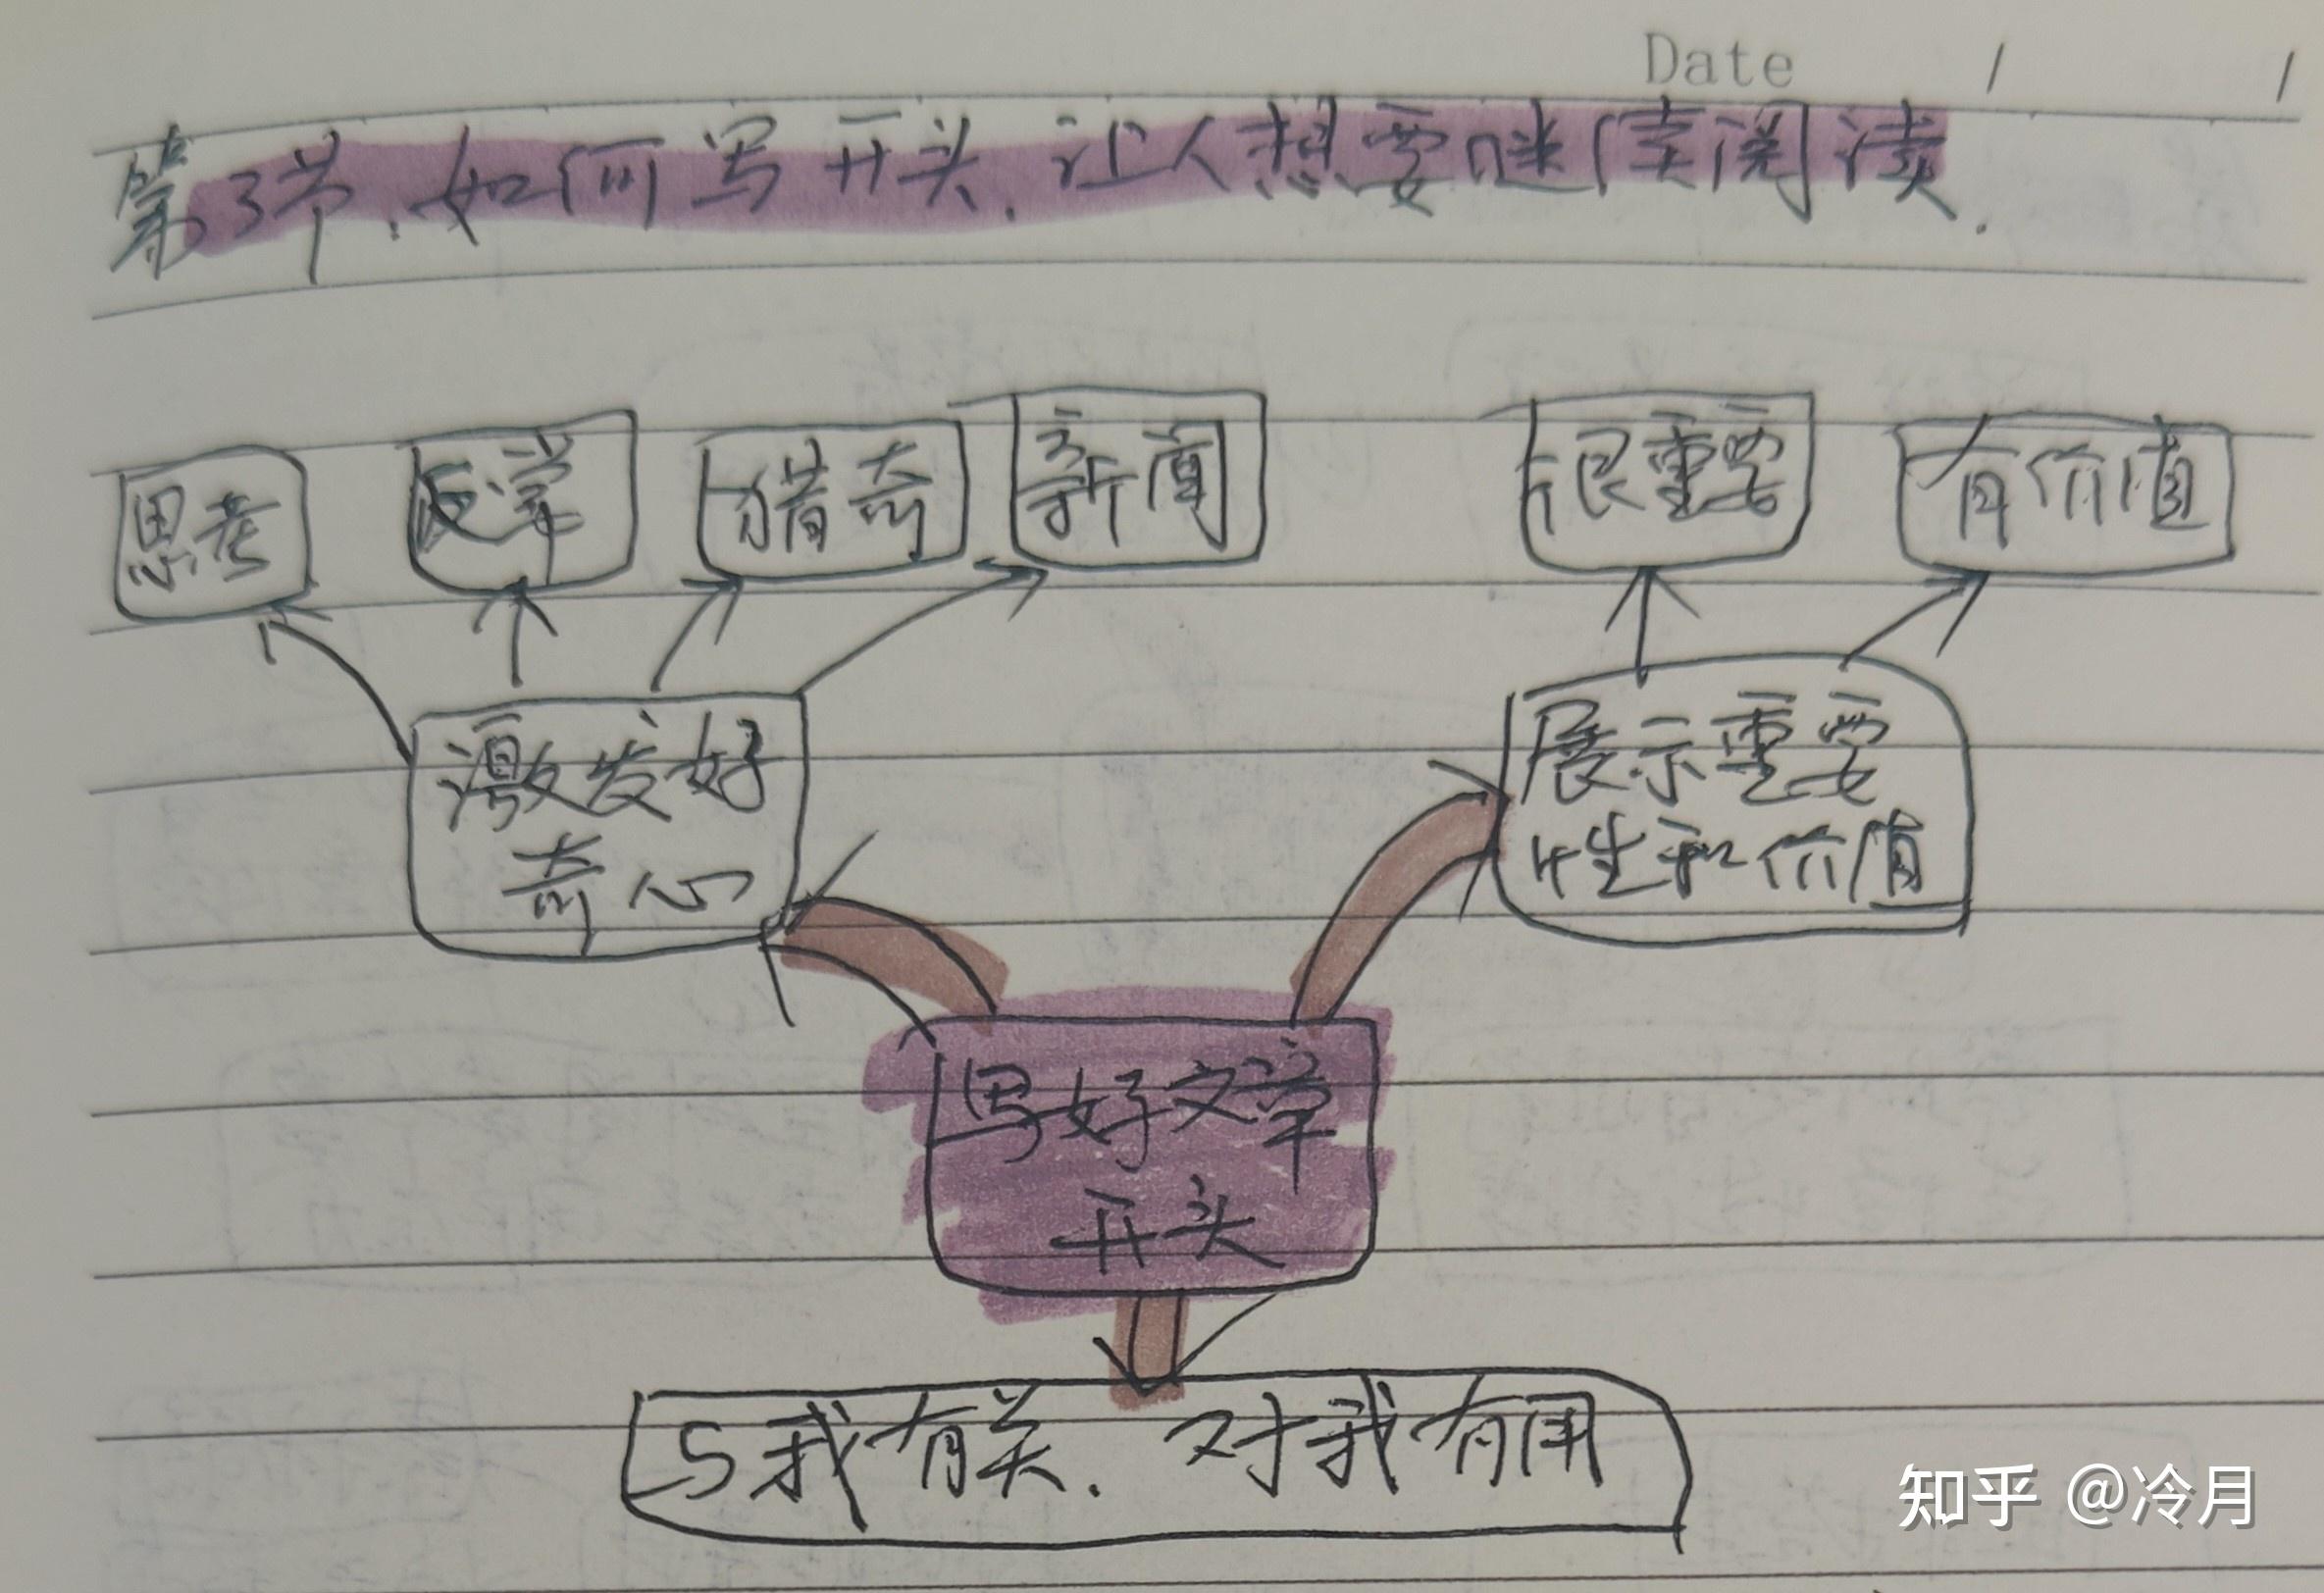 Date / /
第3节.如何写开头.让人想要继续阅读.
思考
反常
猎奇
新闻
很重要
有价值
激发好
奇心
展示重要
性和价值
写好文章
开头
与我有关.对我有用
知乎 @冷月